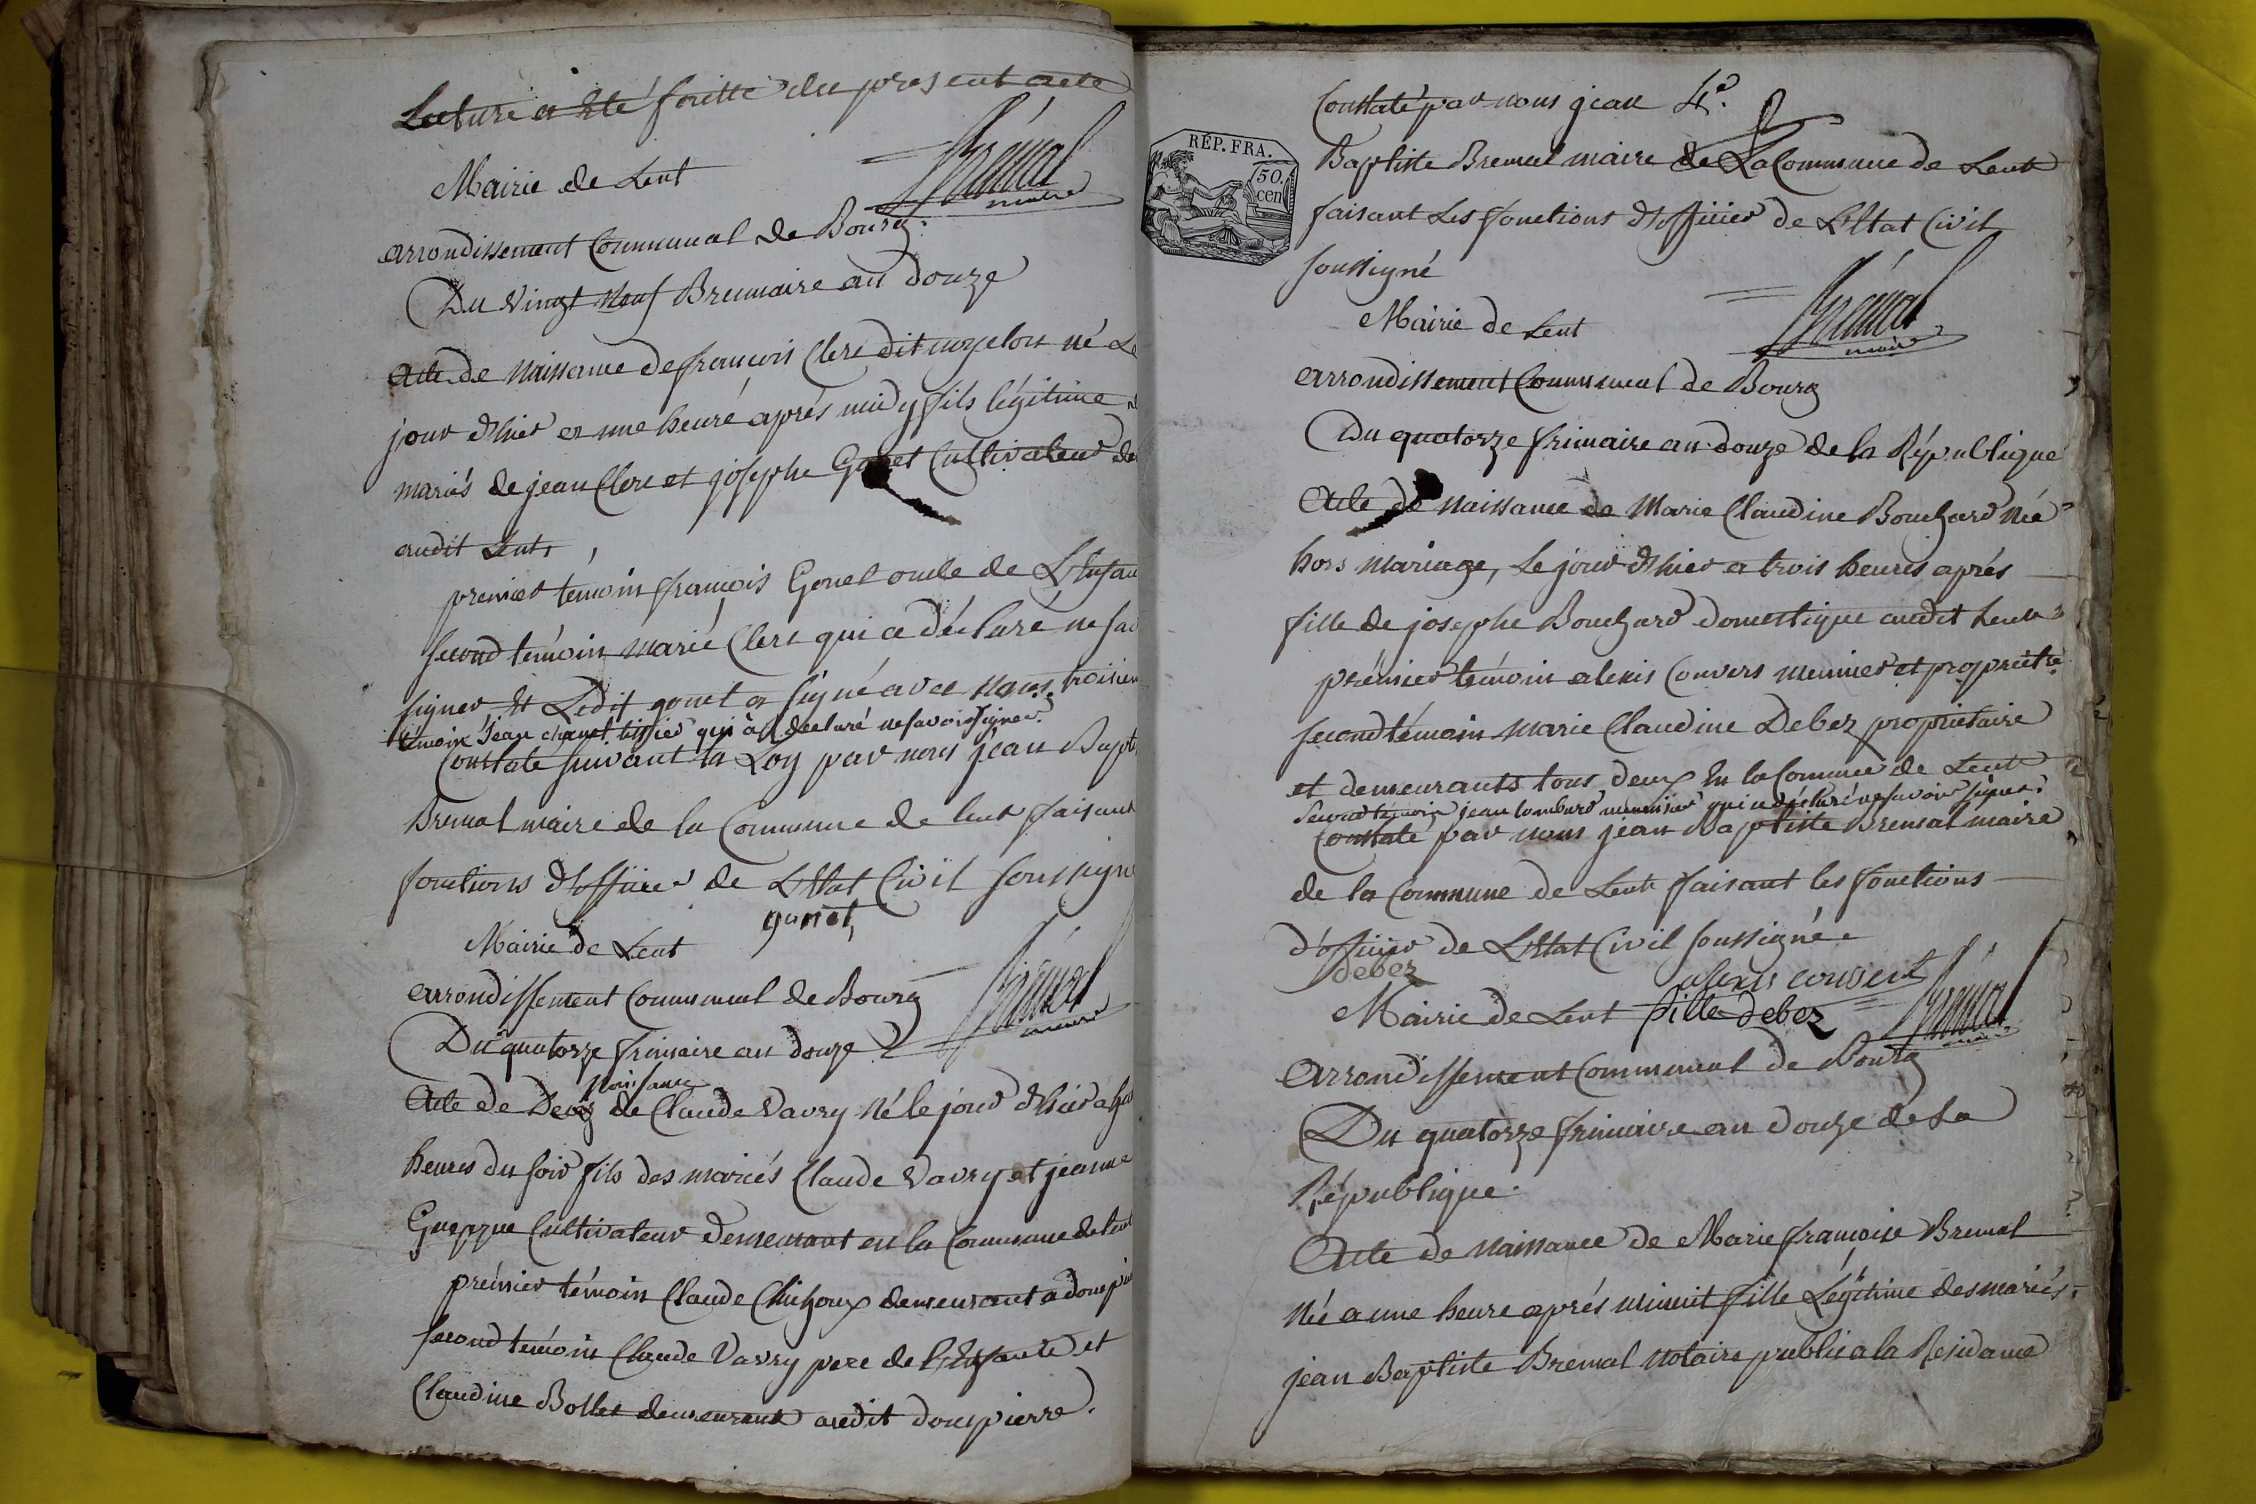 Lecture a Eté faitte du present acte
Brémal
maire
Mairie de Lent
arrondissement Communal de Bourg.
Du Vingt neuf Brumaire an douze
Acte de Naissance de françois Clerc dit né Le
jour d'hier a une heure aprés midy fils légitime
mariés de jean Clerc et josephe Gonet Cultivateur de
audit Lent,
premier témoin françois Gonet oncle de L'Enfan
second témoin marie Clerc qui a déclaré ne sav
signer Et Ledit gonet a signé avec Nous, troisiem
témoin jean tissier qui à declaré ne savoir signer.
Constaté suivant la Loy par nous jean Bapt
Bremal maire de la Commune de lent faisant
fonctions d'officier de L'Etat Civil soussigné
gonet,
Brémal
maire
Mairie de Lent
arrondissement Communal de Bourg
Du quatorze frimaire an douze
Naissance
Acte de de Claude Vavry Né le jour d'hier a
heures du soir fils des mariés Claude Vavry et jeanne
Cultivateur demeurant en la Commune de lent
prémier témoin Claude Chichoux demeurant a dompie
second témoin Claude Vavry pere de L'Enfant et
Claudine Bollet demeurant audit dompierre.
RÉP. FRA.
50
cen
Constaté par nous jean
Baptiste Bremal maire de La Commune de Lent
faisant Les fonctions d'officier de L'Etat Civil
soussigné
Brémal
maire
Mairie de Lent
arrondissement Communal de Bourg
Du quatorze frimaire an douze de la République
Acte de Naissance de Marie Claudine Bouchard Née
hors Mariage, Le jour d'hier a trois heures aprés
fille de josephe Bouchard domestique audit Lent
prémier témoin alexis Convers meunier et propriétre
second témoin Marie Claudine Debez propriétaire
et demeurants tous deux En la Commune de Lent
Second témoin jean lombard qui a déclaré ne savoir signer.
Constaté par nous jean Baptiste Bremal maire
de la Commune de Lent faisant les fonctions
d'officier de L'Etat Civil soussigné.
debez
alexis convert
fille debez
Brémal
maire
Mairie de Lent
Arrondissement Communal de Bourg
Du quatorze frimaire an douze de La
République.
Acte de Naissance de Marie françoise Bremal
Née a une heure aprés minuit fille Légitime des mariés
jean Baptiste Bremal Notaire public a la Residance